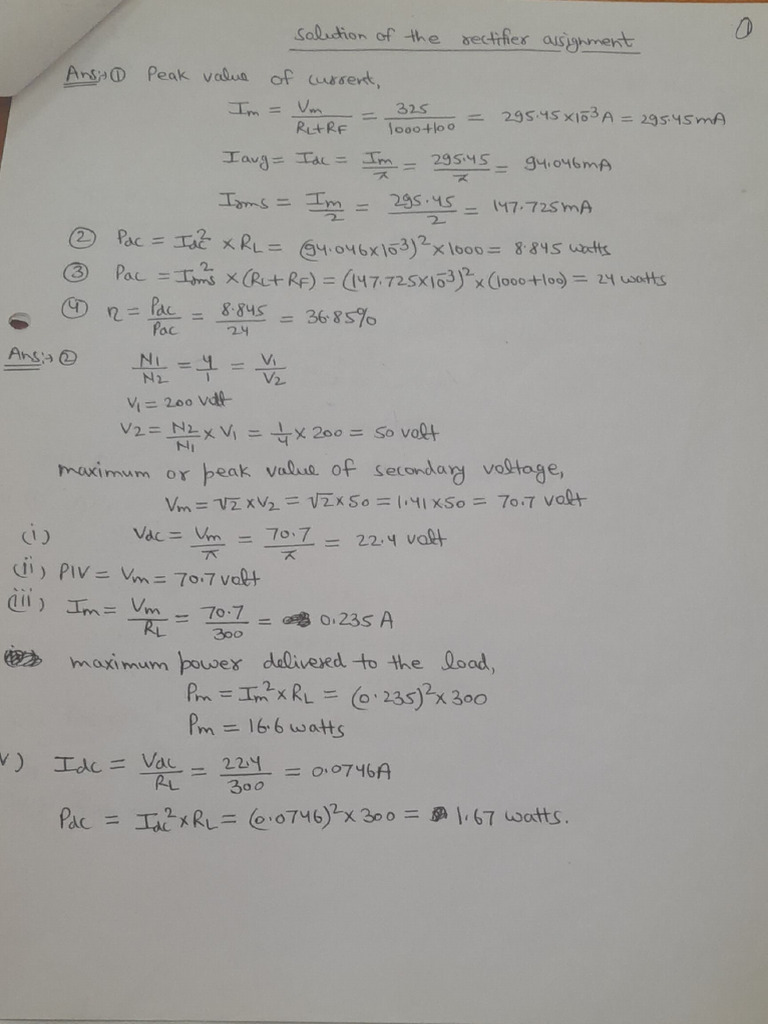 ①
Solution of the rectifier assignment
Ans:→① Peak value of current,
Im = Vm/(RL+RF) = 325/(1000+100) = 295.45×10⁻³A = 295.45mA
Iavg = Idc = Im/π = 295.45/π = 94.046mA
Irms = Im/2 = 295.45/2 = 147.725mA
② Pdc = Idc² × RL = (94.046×10⁻³)² × 1000 = 8.845 watts
③ Pac = Irms² × (RL+RF) = (147.725×10⁻³)² × (1000+100) = 24 watts
④ η = Pdc/Pac = 8.845/24 = 36.85%
Ans:→② N1/N2 = 4/1 = V1/V2
V1 = 200 volt
V2 = N2/N1 × V1 = 1/4 × 200 = 50 volt
maximum or peak value of secondary voltage,
Vm = √2 × V2 = √2 × 50 = 1.41 × 50 = 70.7 volt
(i) Vdc = Vm/π = 70.7/π = 22.4 volt
(ii) PIV = Vm = 70.7 volt
(iii) Im = Vm/RL = 70.7/300 = 0.235 A
maximum power delivered to the load,
Pm = Im² × RL = (0.235)² × 300
Pm = 16.6 watts
v) Idc = Vdc/RL = 22.4/300 = 0.0746A
Pdc = Idc² × RL = (0.0746)² × 300 = 1.67 watts.